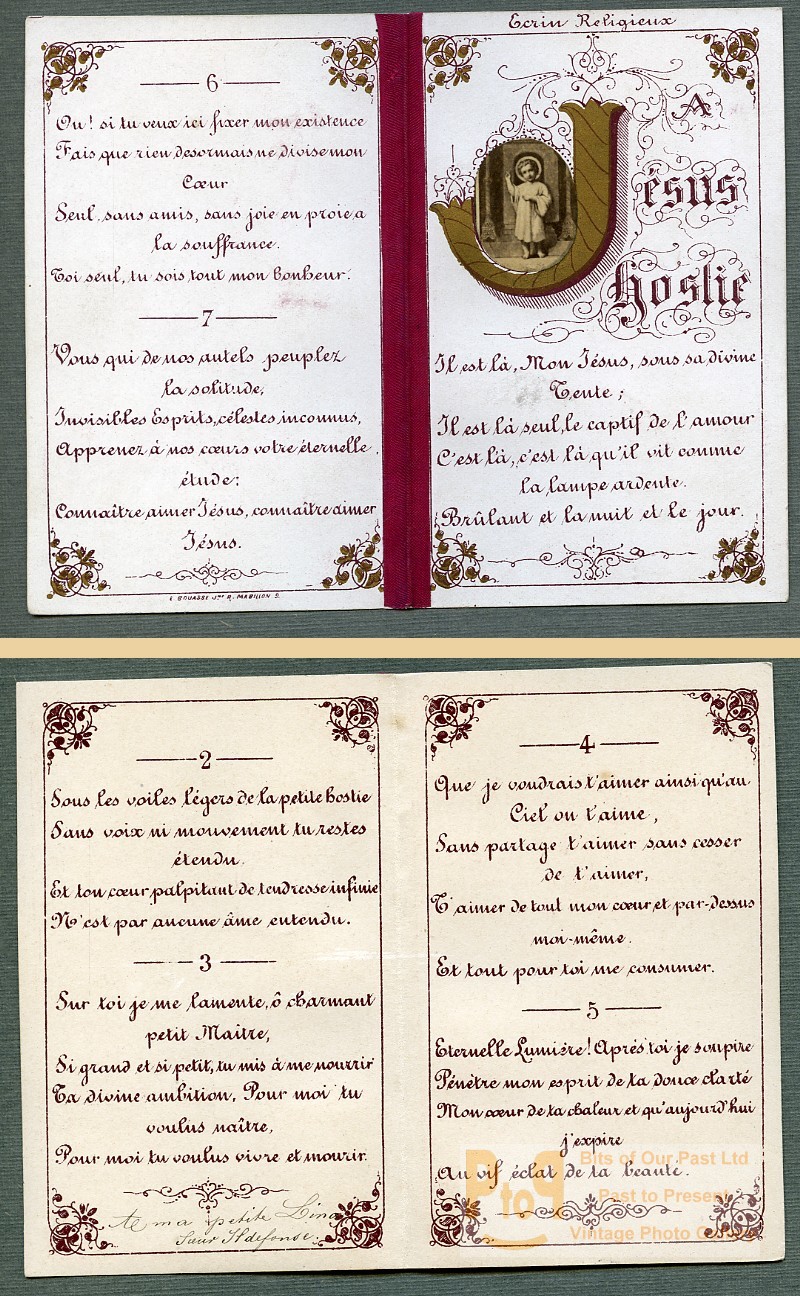 6
Ou! si tu veux ici fixer mon existence
Fais que rien desormais ne divise mon
Cœur
Seul, sans amis, sans joie en proie a
la souffrance.
Toi seul, tu sois tout mon bonheur.
7
Vous qui de nos autels peuplez
la solitude,
Invisibles Esprits, célestes inconnus,
Apprenez à nos cœurs votre éternelle
étude:
Connaître aimer Jésus, connaître aimer
Jésus.
E. BOUASSE Jne R. MABILLON 9.
Ecrin Religieux
A
Jésus
Hostie
Il est là, Mon Jésus, sous sa divine
Tente;
Il est là seul, le captif de l'amour
C'est là, c'est là qu'il vit comme
la lampe ardente.
Brûlant et la nuit et le jour.
2
Sous les voiles légers de la petite hostie
Sans voix ni mouvement tu restes
étendu.
Et ton cœur palpitant de tendresse infinie
N'est par aucune âme entendu.
3
Sur toi je me lamente, ô charmant
petit Maître,
Si grand et si petit, tu mis à me nourrir
Ta divine ambition, Pour moi tu
voulus naître,
Pour moi tu voulus vivre et mourir.
A ma petite Lina
Sœur Ildefonse.
4
Que je voudrais t'aimer ainsi qu'au
Ciel on t'aime,
Sans partage t'aimer sans cesser
de t'aimer,
T'aimer de tout mon cœur et par-dessus
moi-même.
Et tout pour toi me consumer.
5
Eternelle Lumière! Après toi je soupire
Pénètre mon esprit de ta douce clarté
Mon cœur de ta chaleur et qu'aujourd'hui
j'expire
Au vif éclat de ta beauté.
PtoP
Bits of Our Past Ltd
Past to Present
Vintage Photo